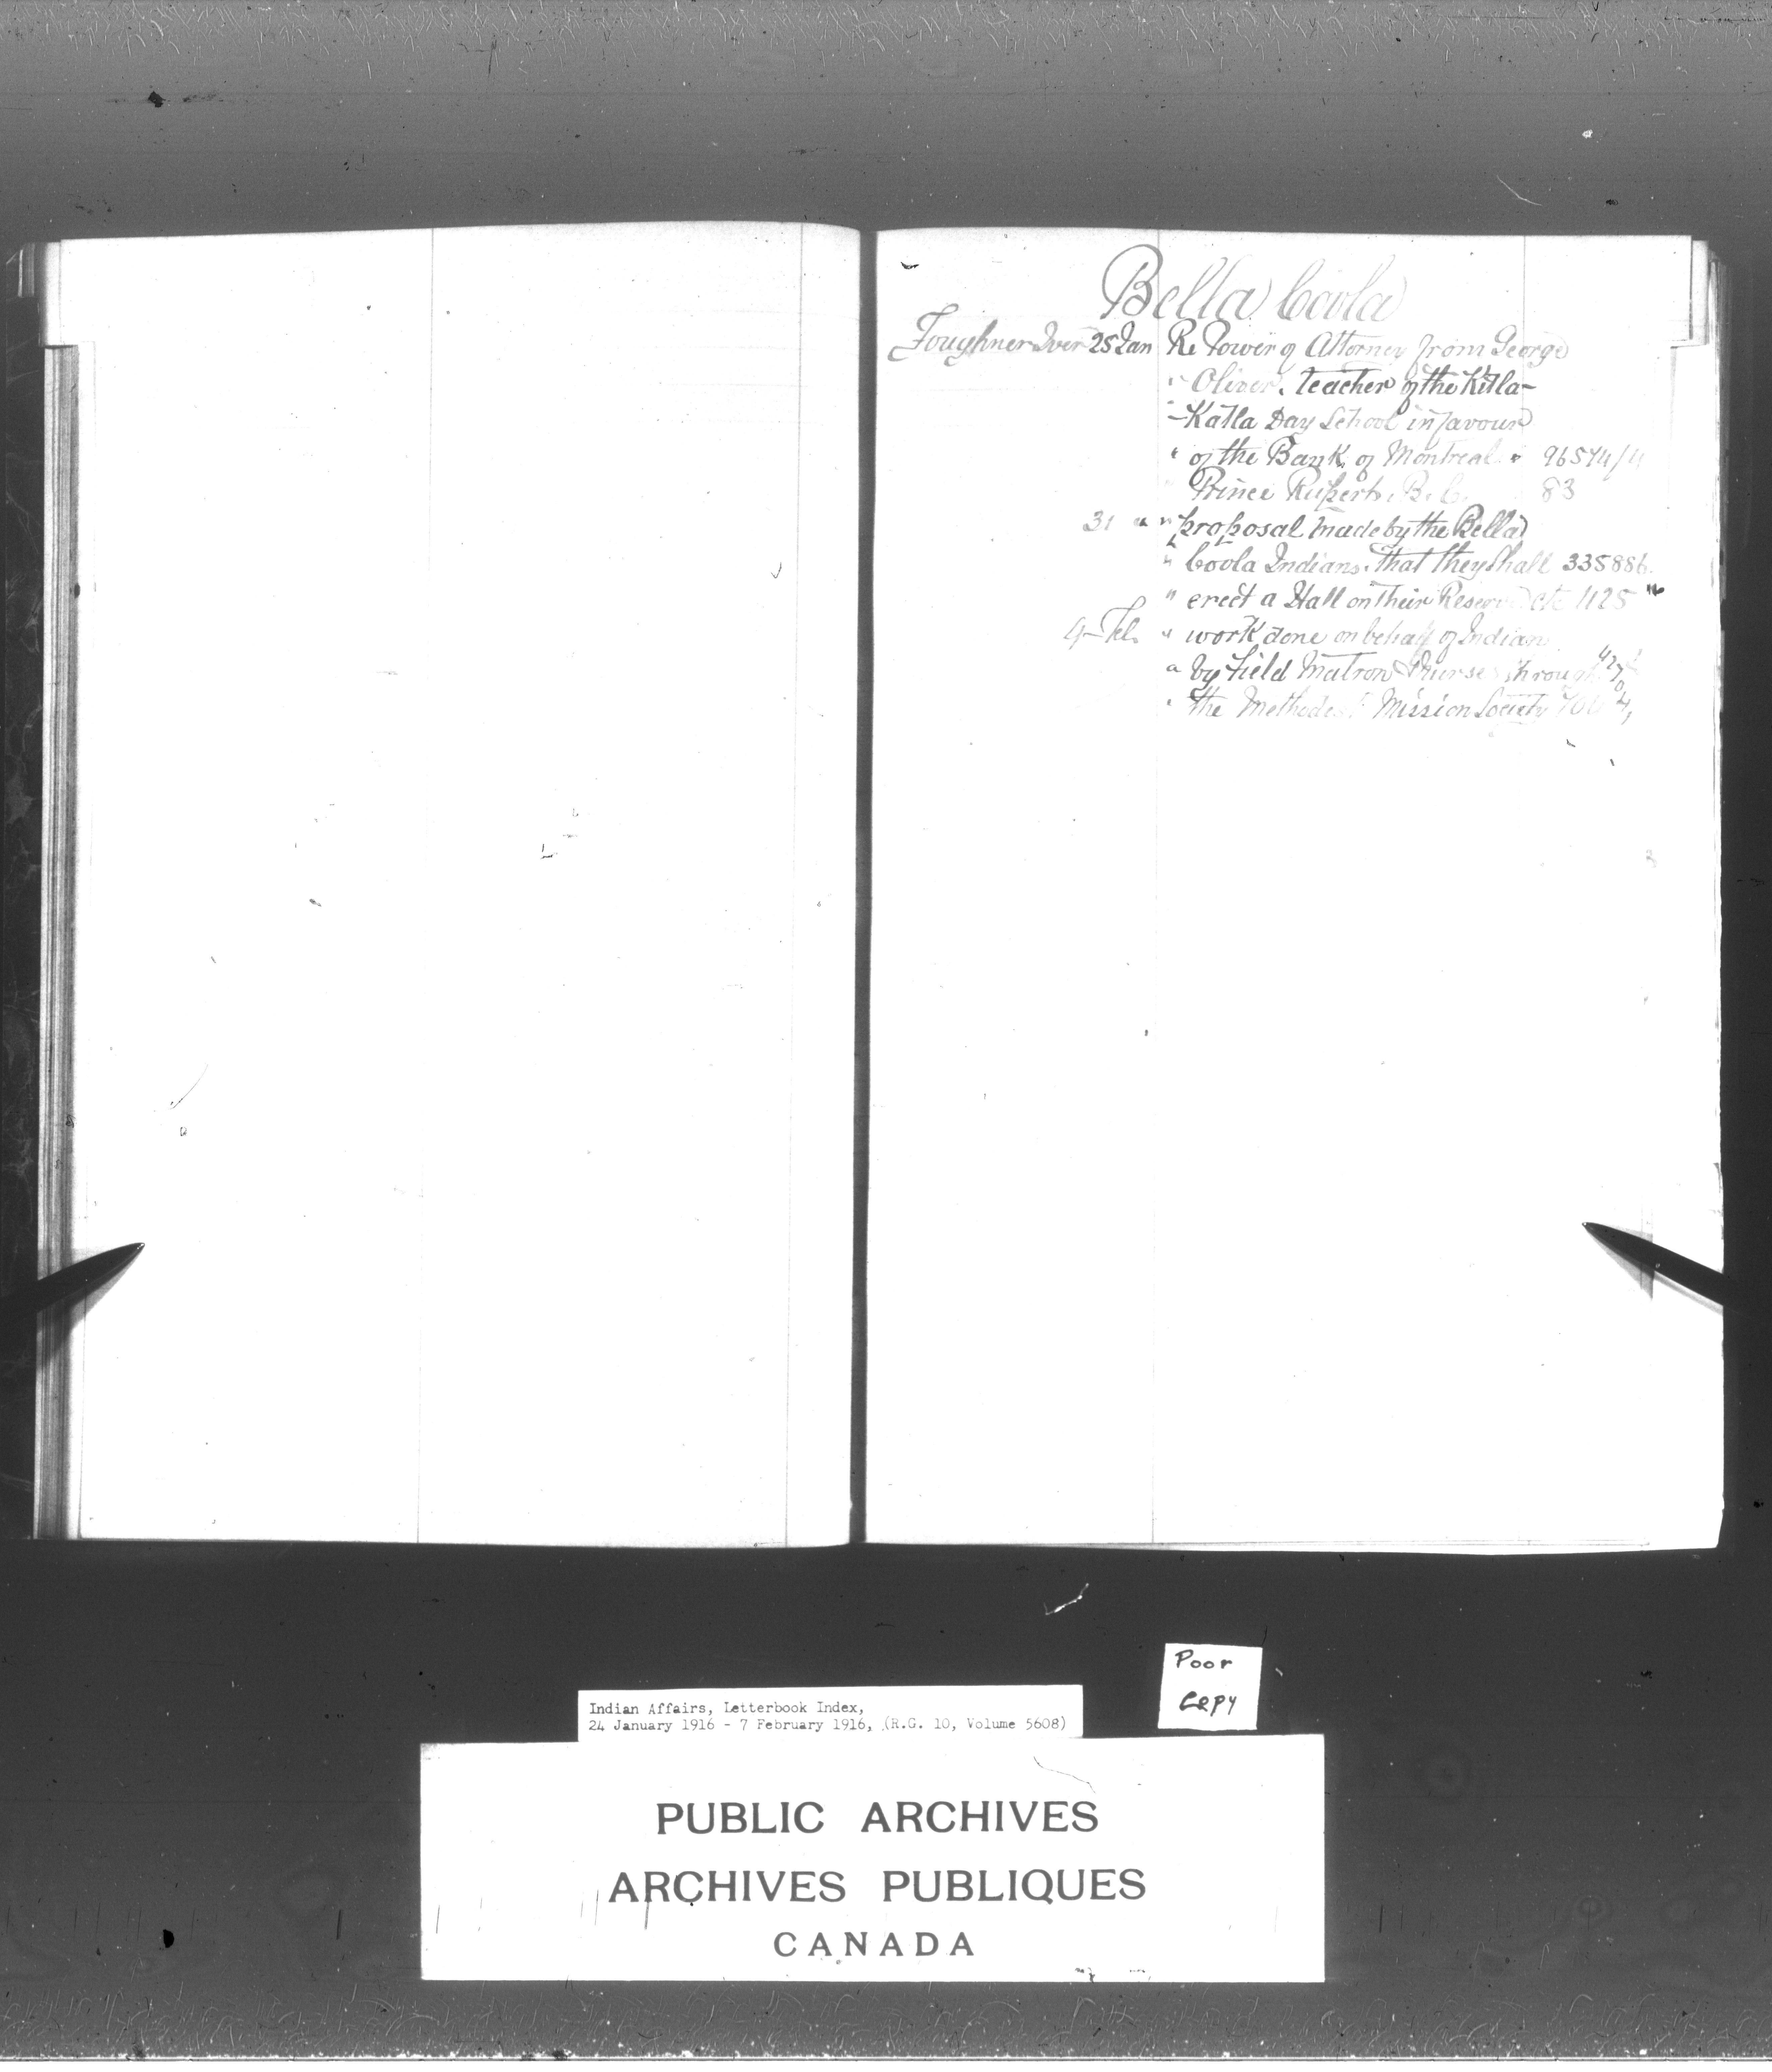 Bella Coola
Fougner Iver 25 Jan Re Power of Attorney from George
" Oliver. teacher of the Kitla-
-Katla Day School in favour
" of the Bank of Montreal " 96574/4
Prince Rupert. B. C. 83
31 " " proposal made by the Bella
" Coola Indians. that they shall 335886.
" erect a Hall on their Reserve etc 1125 "
4-Feb. " work done on behalf of Indian
" by Field Matron & Nurse through
" the Methodist Mission Society
Poor
Copy
Indian Affairs, Letterbook Index,
24 January 1916 - 7 February 1916, (R.G. 10, Volume 5608)
PUBLIC ARCHIVES
ARCHIVES PUBLIQUES
CANADA